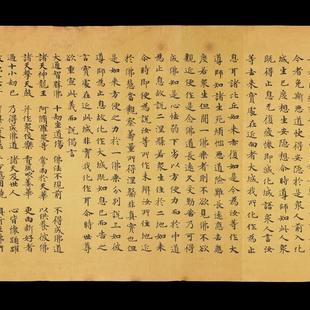 今者免斯惡道快得安隱於是眾人前入化
城生已度想生安隱想爾時導師知此人眾
既得止息無復疲惓即滅化城語眾人言汝
等去來寶處在近向者大城我所化作為止
息耳諸比丘如來亦復如是今為汝等作大
導師知諸生死煩惱惡道險難長遠應去應
度若眾生但聞一佛乘者則不欲見佛不欲
親近便作是念佛道長遠久受勤苦乃可得
成佛知是心怯弱下劣以方便力而於中道
為止息故說二涅槃若眾生住於二地如來
爾時即便為說汝等所作未辦汝所住地近
於佛慧當觀察籌量所得涅槃非真實也但
是如來方便之力於一佛乘分別說三如彼
導師為止息故化作大城既知息已而告之
言寶處在近此城非實我化作耳爾時世尊
欲重宣此義而說偈言
大通智勝佛 十劫坐道場 佛法不現前 不得成佛道
諸天神龍王 阿脩羅眾等 常雨於天華 以供養彼佛
諸天擊天鼓 并作眾伎樂 香風吹萎華 更雨新好者
過十小劫已 乃得成佛道 諸天及世人 心皆懷踊躍